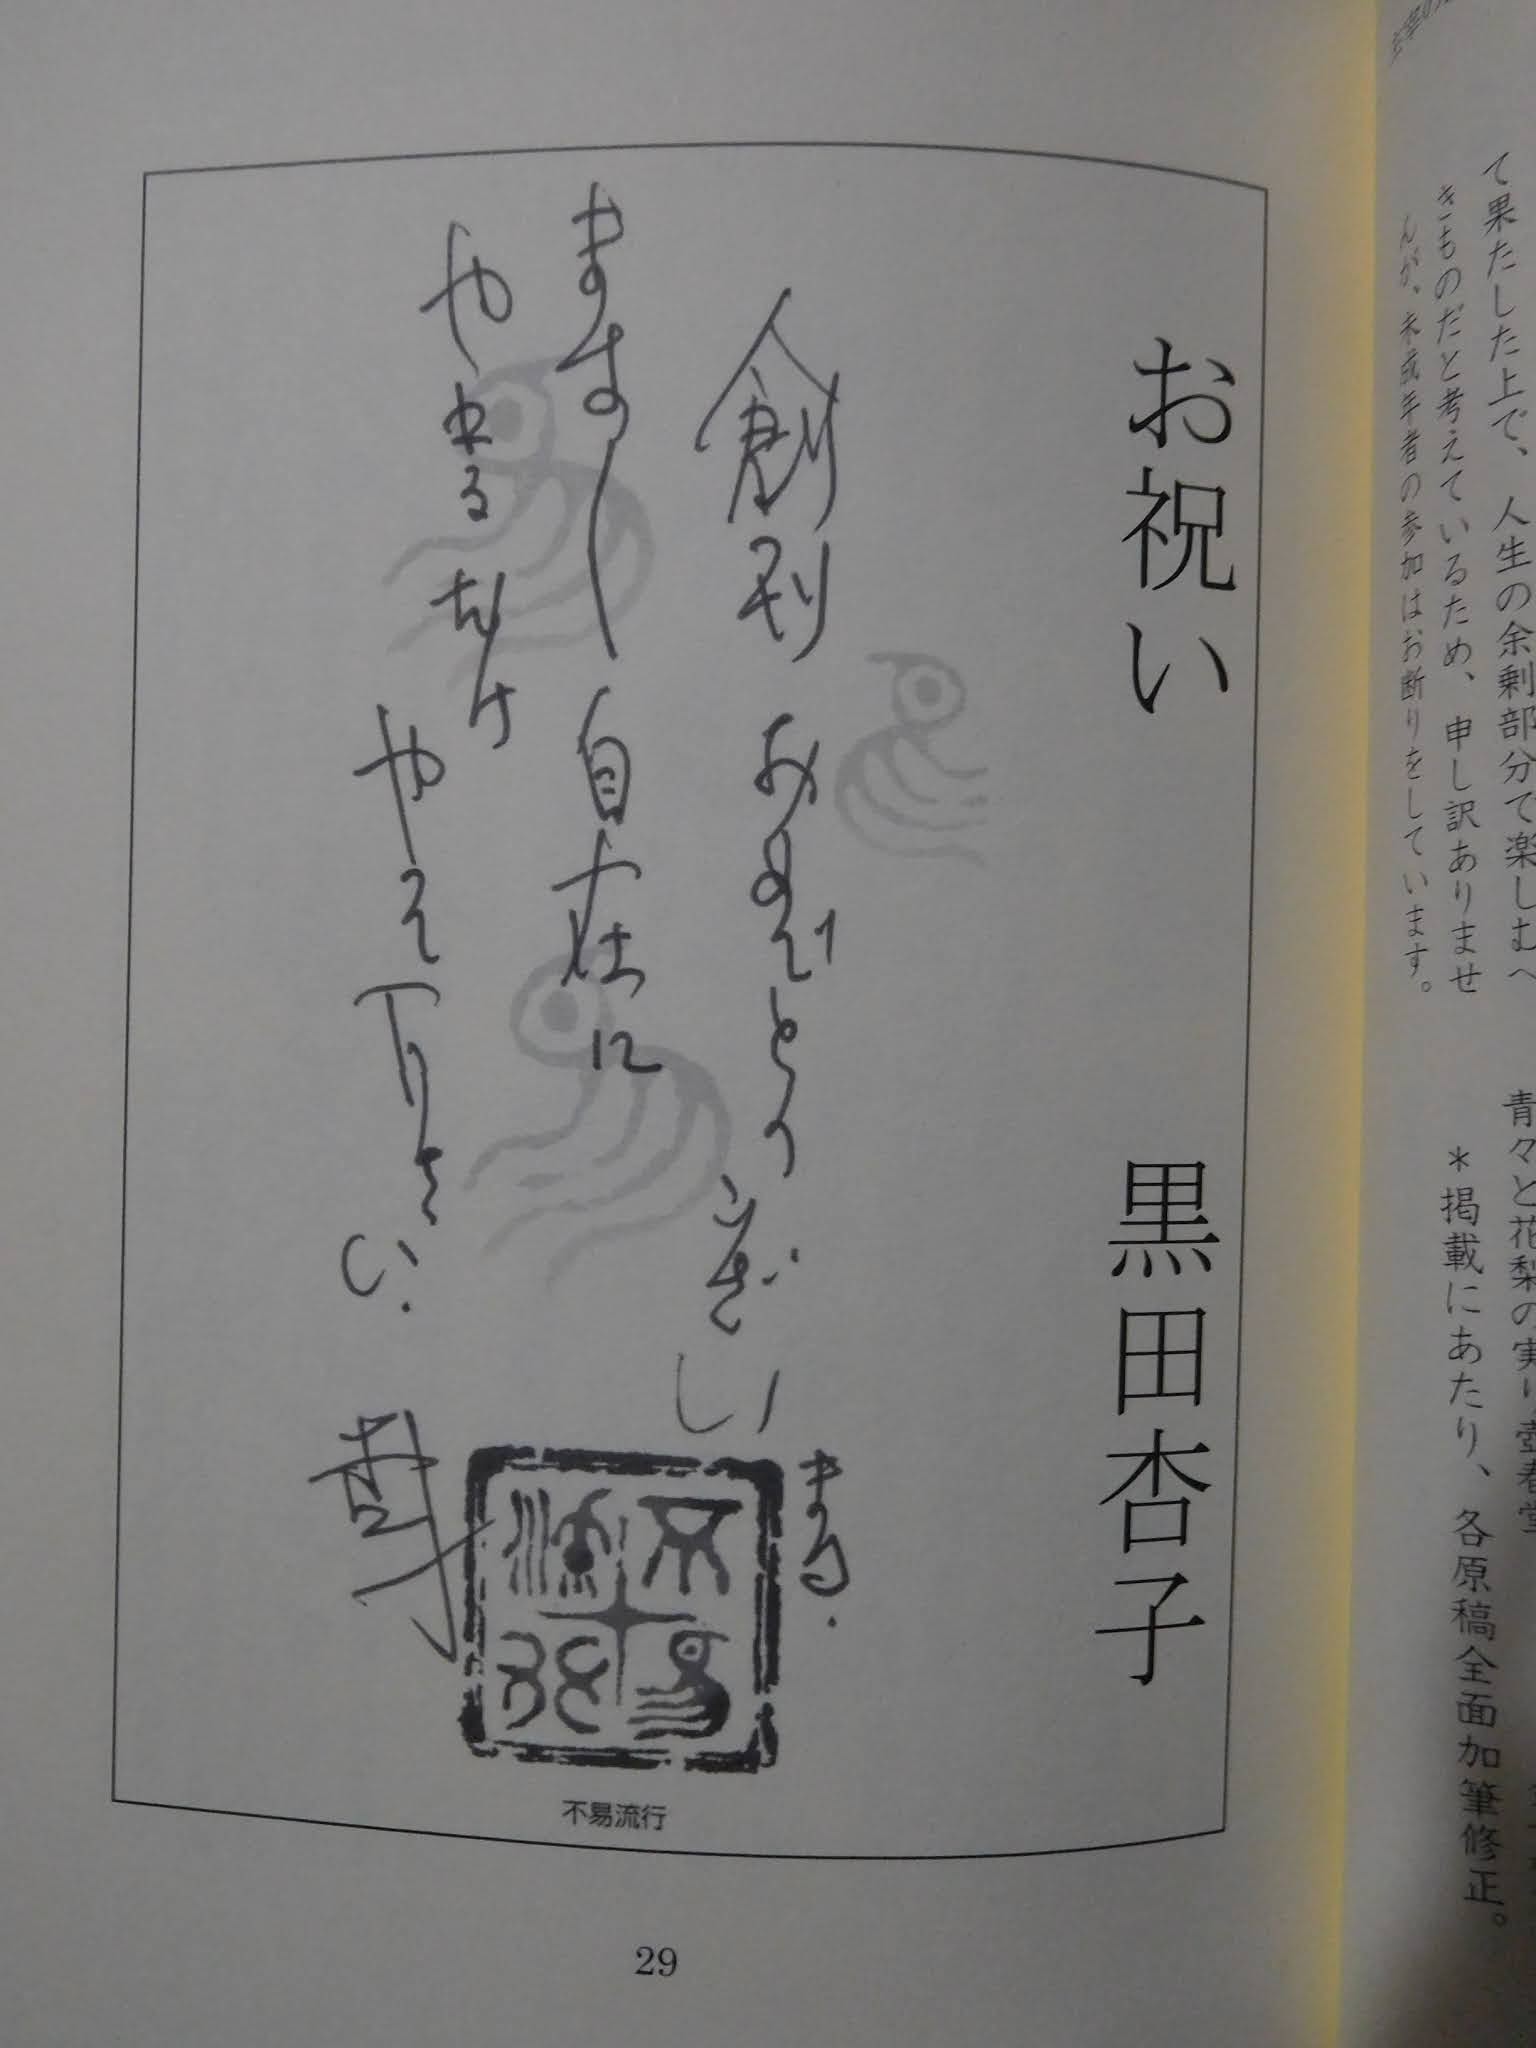 て果たした上で、人生の余剰部分で楽しむべ
きものだと考えているため、申し訳ありませ
んが、未成年者の参加はお断りをしています。
青々と花梨の実り壺春堂
*掲載にあたり、各原稿全面加筆修正。
お祝い 黒田杏子
創刊 おめでとうございます。
ますます 自在に
やれるだけ
やって下さい。
不易流行
29